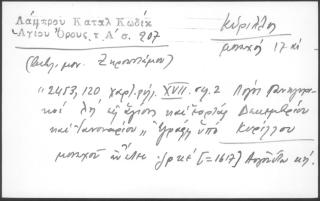 Λάμπρου Καταλ Κωδικ
Ἁγίου Ὄρους τ. Α' σ. 207
Κύριλλος
μοναχὸς 17 αἰ
(Βιβλ. μον. Ξηροποτάμου)
"2453, 120 χαρτ. φύλ. XVII. σελ. 2 Λόγοι Πανηγυρι-
κοὶ λη' εἰς ἁγίους καὶ ἑορτὰς Δεκεμβρίου
καὶ Ἰανουαρίου" Ἐγράφη ὑπὸ Κυρίλλου
μοναχοῦ ἐν ἔτει ͵ζρκέ (=1617) Αὐγούστῳ κή.